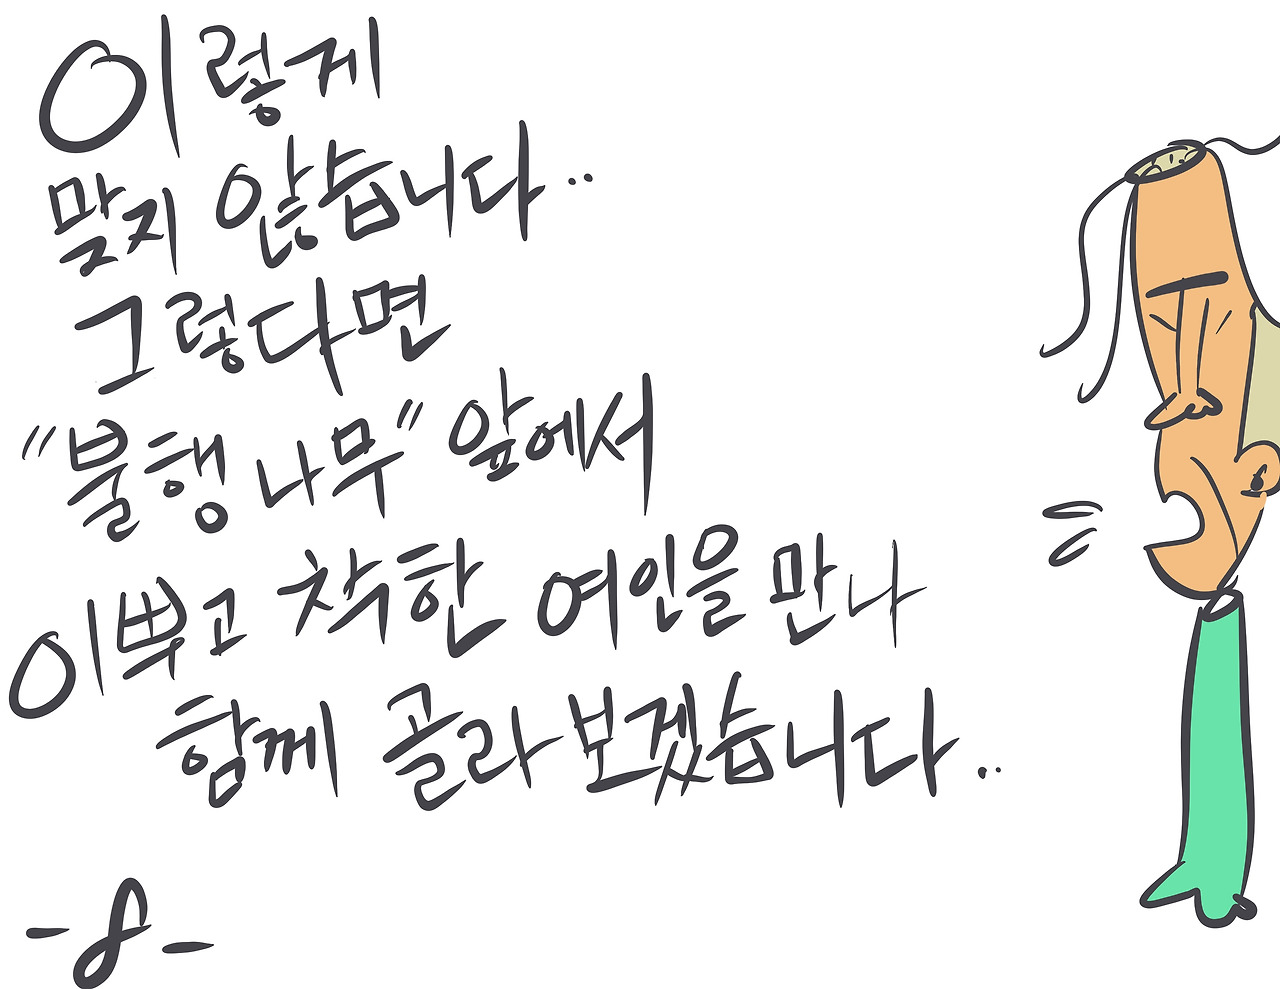 이렇게
맞지 않습니다..
그렇다면
"불행 나무" 앞에서
이쁘고 착한 여인을 만나
함께 골라보겠습니다..
-8-